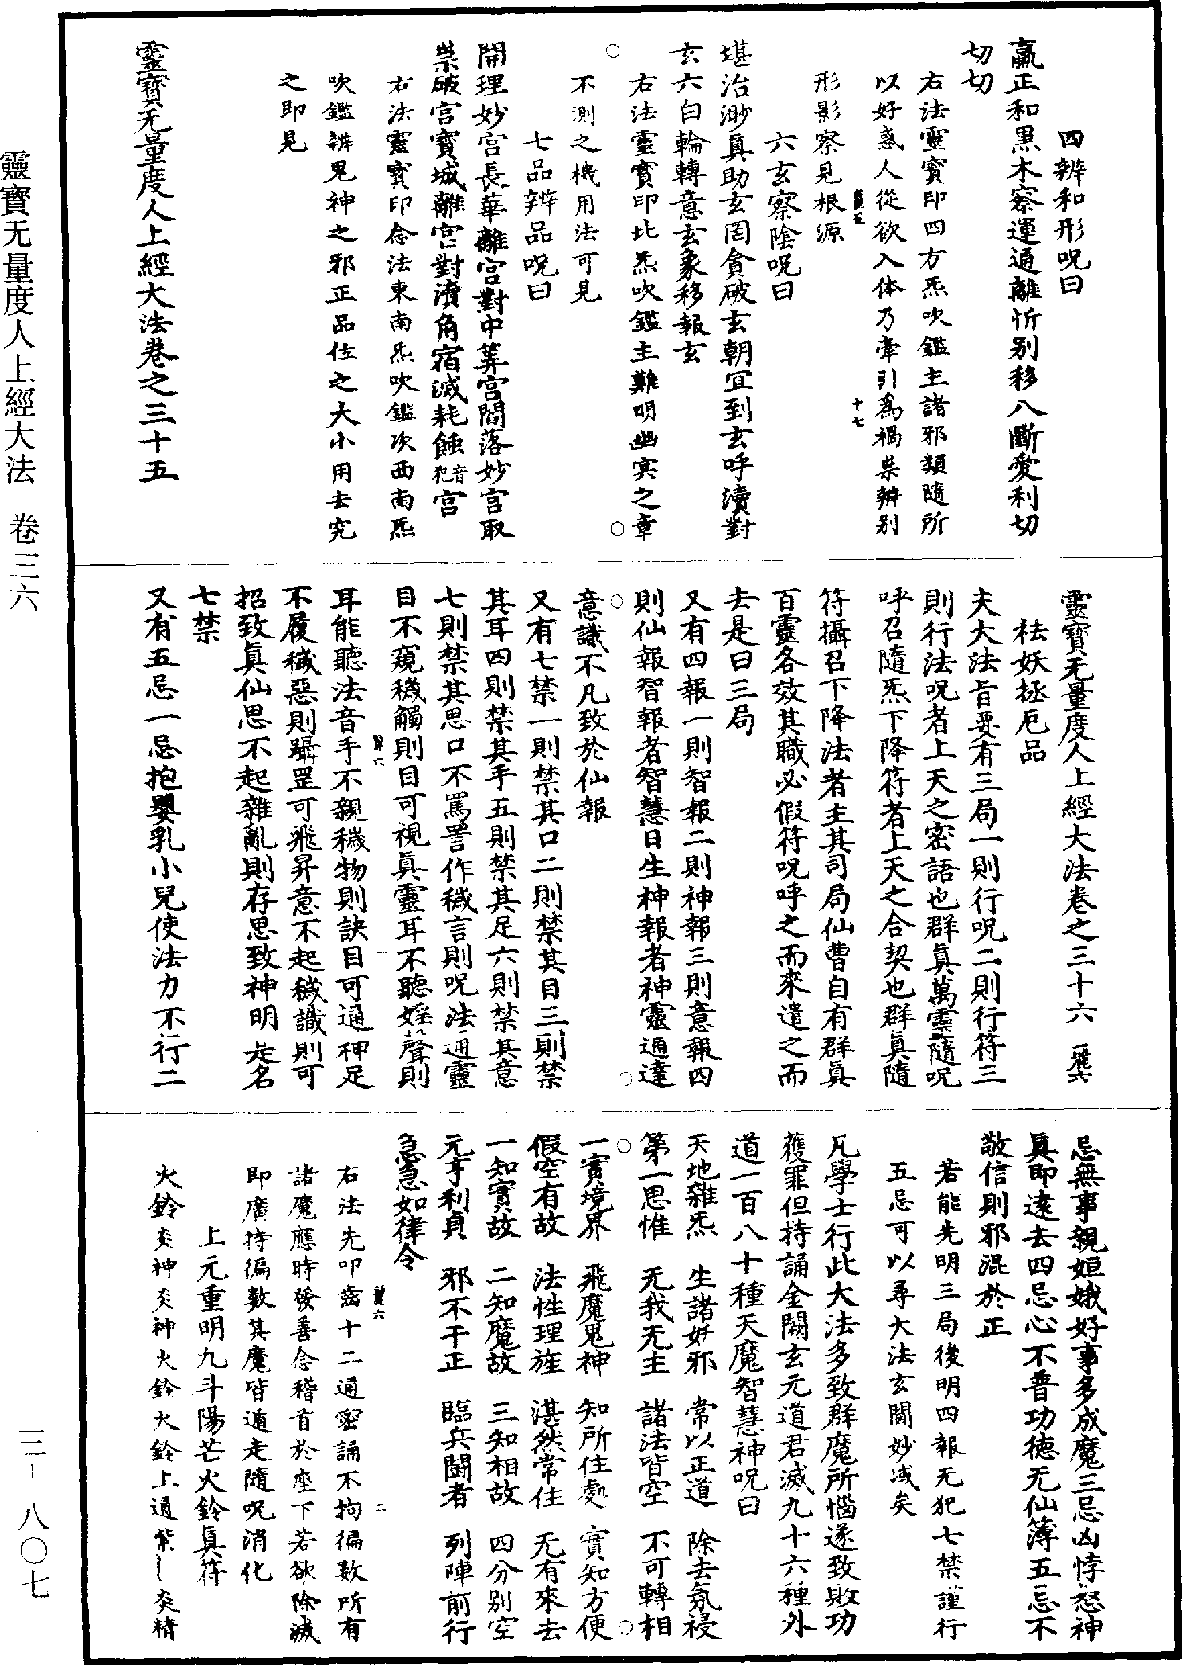 四辨和形呪曰
贏正和黒木察運通離忻别移八斷愛利切
切切
右法靈寳印四方炁吹鑑主諸邪類隨所
以好惑人從欲入体乃牽引爲禍祟辨别
形影察見根源
十七
六玄察陰呪曰
堪治渺真助玄罔貪破玄朝冝到玄呼瀆對
玄六白輪轉意玄象移報玄
右法靈寳印北炁吹鑑主難明幽冥之章
不測之機用法可見
七品辨品呪曰
開理妙宫長華離宫對中筭宫閻落妙宫取
祟破宫寳城離宫對瀆角宿滅耗蝕音犯宫
右法靈寳印念法東南炁吹鑑次西南炁
吹鑑辨鬼神之邪正品位之大小用去究
之即見
靈寳无量度人上經大法巻之三十五
靈寳无量度人上經大法卷之三十六
祛妖拯厄品
夫大法旨要有三局一則行呪二則行符三
則行法呪者上天之密語也群真萬靈隨呪
呼召隨炁下降符者上天之合契也群真隨
符攝召下降法者主其司局仙曹自有群真
百靈各效其職必假符呪呼之而來遣之而
去是曰三局
又有四報一則智報二則神報三則意報四
則仙報智報者智慧日生神報者神靈通達
意識不凡致於仙報
又有七禁一則禁其口二則禁其目三則禁
其耳四則禁其手五則禁其足六則禁其意
七則禁其思口不罵詈作穢言則呪法通靈
目不窺穢觸則目可視真靈耳不聽婬聲則
耳能聽法音手不親穢物則訣目可通神足
不履穢惡則躡罡可飛昇意不起穢識則可
招致真仙思不起雜亂則存思致神明是名
七禁
又有五忌一忌抱嬰乳小兒使法力不行二
忌無事親姮娥好事多成魔三忌凶悖怒神
真即遠去四忌心不普功德无仙簿五忌不
敬信則邪混於正
若能先明三局後明四報无犯七禁謹行
五忌可以尋大法玄關妙域矣
凡學士行此大法多致群魔所惱遂致敗功
獲罪但持誦金闕玄元道君滅九十六種外
道一百八十種天魔智慧神呪曰
天地雜炁 生諸妖邪 常以正道 除去氛祲
第一思惟 无我无主 諸法皆空 不可轉相
一實境界 飛魔鬼神 知所住處 實知方便
假空有故 法性理旌 湛然常住 无有來去
一知實故 二知魔故 三知相故 四分别空
元亨利貞 邪不干正 臨兵鬪者 列陣前行
急急如律令
右法先叩齒十二通密誦不拘徧數所有
諸魔應時發善念稽首於座下若欲除滅
即廣持徧數其魔皆遁走隨呪消化
上元重明九斗陽芒火鈴真符
火鈴炎神炎神火鈴火鈴上通紫炎精
靈寶无量度人上經大法 卷三六
三－八〇七